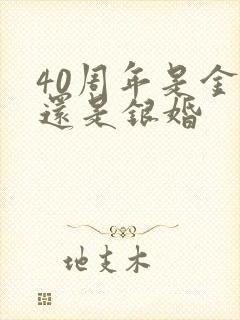 40周年是金
還是銀婚
地支木